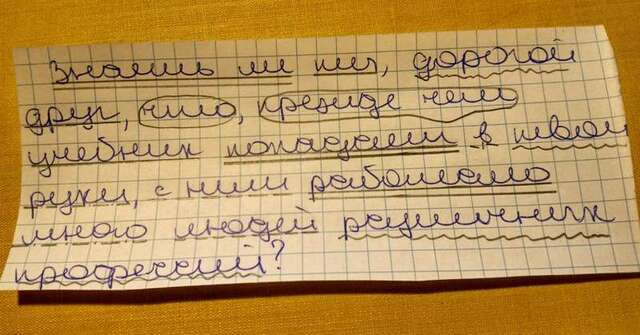 Знаешь ли ты, дорогой
друг, что, прежде чем
учебник попадает в твои
руки, с ним работало
много людей различных
профессий?